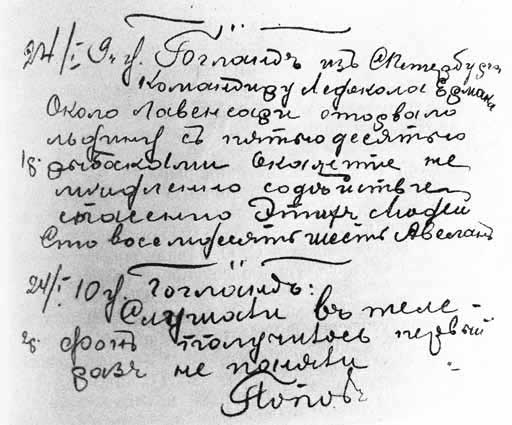 24/I 9 ч. Гогландъ изъ СПетербурга
Командиру ледокола Ермакъ
Около Лавенсари оторвало
льдину съ пятьюдесятью
рыбаками окажите не
медленно содѣйствіе
спасенію этихъ людей
Сто восемьдесятъ шесть Авеланъ
24/I 10 ч. Гогландъ:
Слушали въ теле-
фонъ получилось первый
разъ не поняли
Поповъ